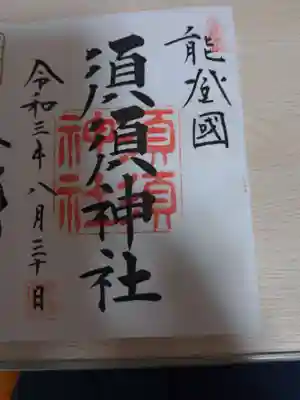 能登國
須須神社
須須
神社
令和三年八月三十日